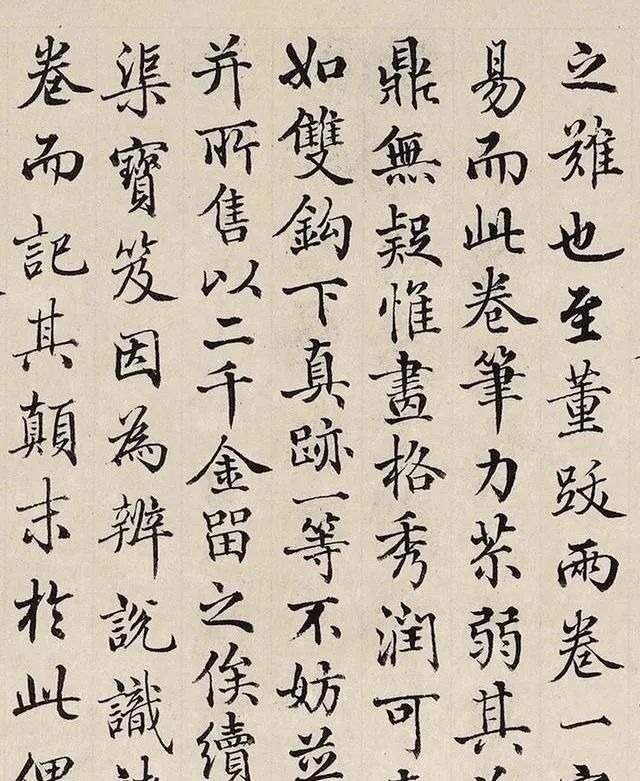 之難也至董跋兩卷一
易而此卷筆力苶弱其
鼎無疑惟畫格秀潤可
如雙鈎下真跡一等不妨並
并所售以二千金留之俟續
渠寶笈因為辨說識
卷而記其顛末於此偶